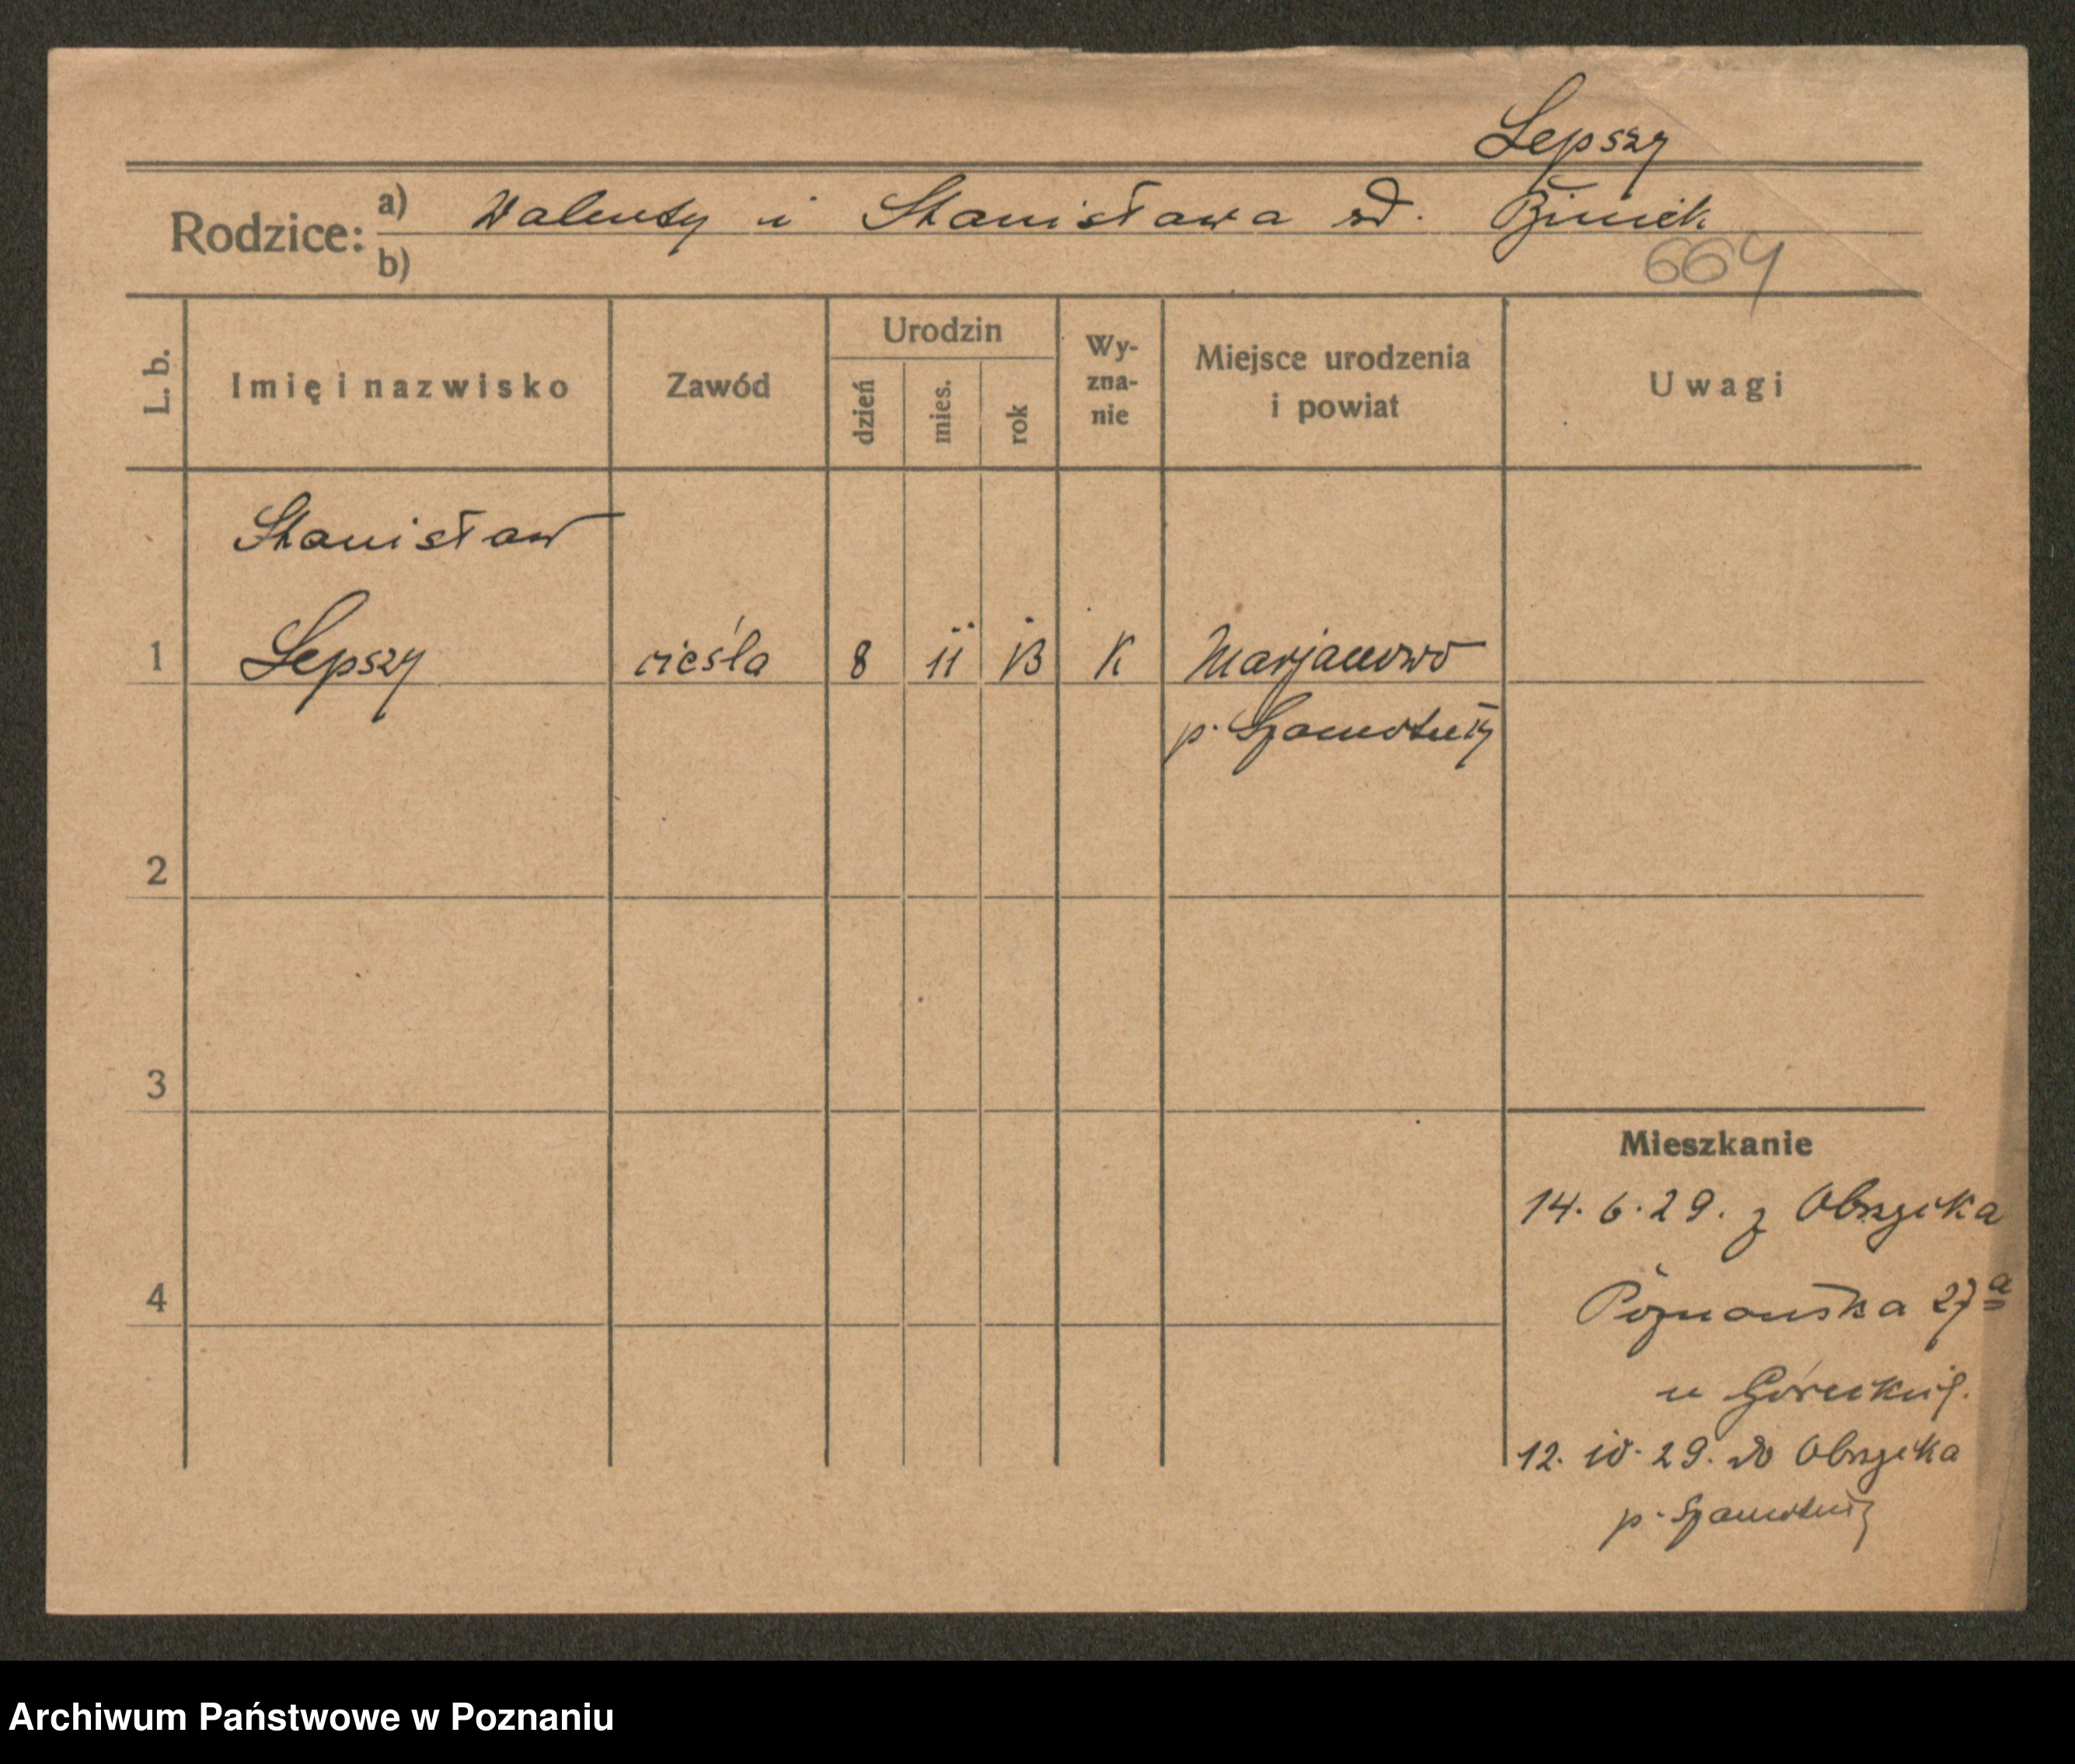 Lepszy
Rodzice: a) Walenty i Stanisława rd.
b)
664
L. b. Imię i nazwisko Zawód Urodzin dzień mies. rok Wy-zna-nie Miejsce urodzenia i powiat Uwagi
Stanisław
1 Lepszy cieśla 8 11 13 K Marjanowo
p. Szamotuły
2
3
Mieszkanie
14. 6. 29. z Obrzycka
4
Poznańska 27a
u Góreckiej.
12. 10. 29. do Obrzycka
p. Szamotuły
Archiwum Państwowe w Poznaniu